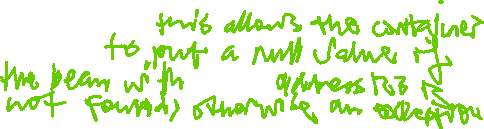 this allows the container
to put a null value if
the bean with address123 is
not found, otherwise an exception